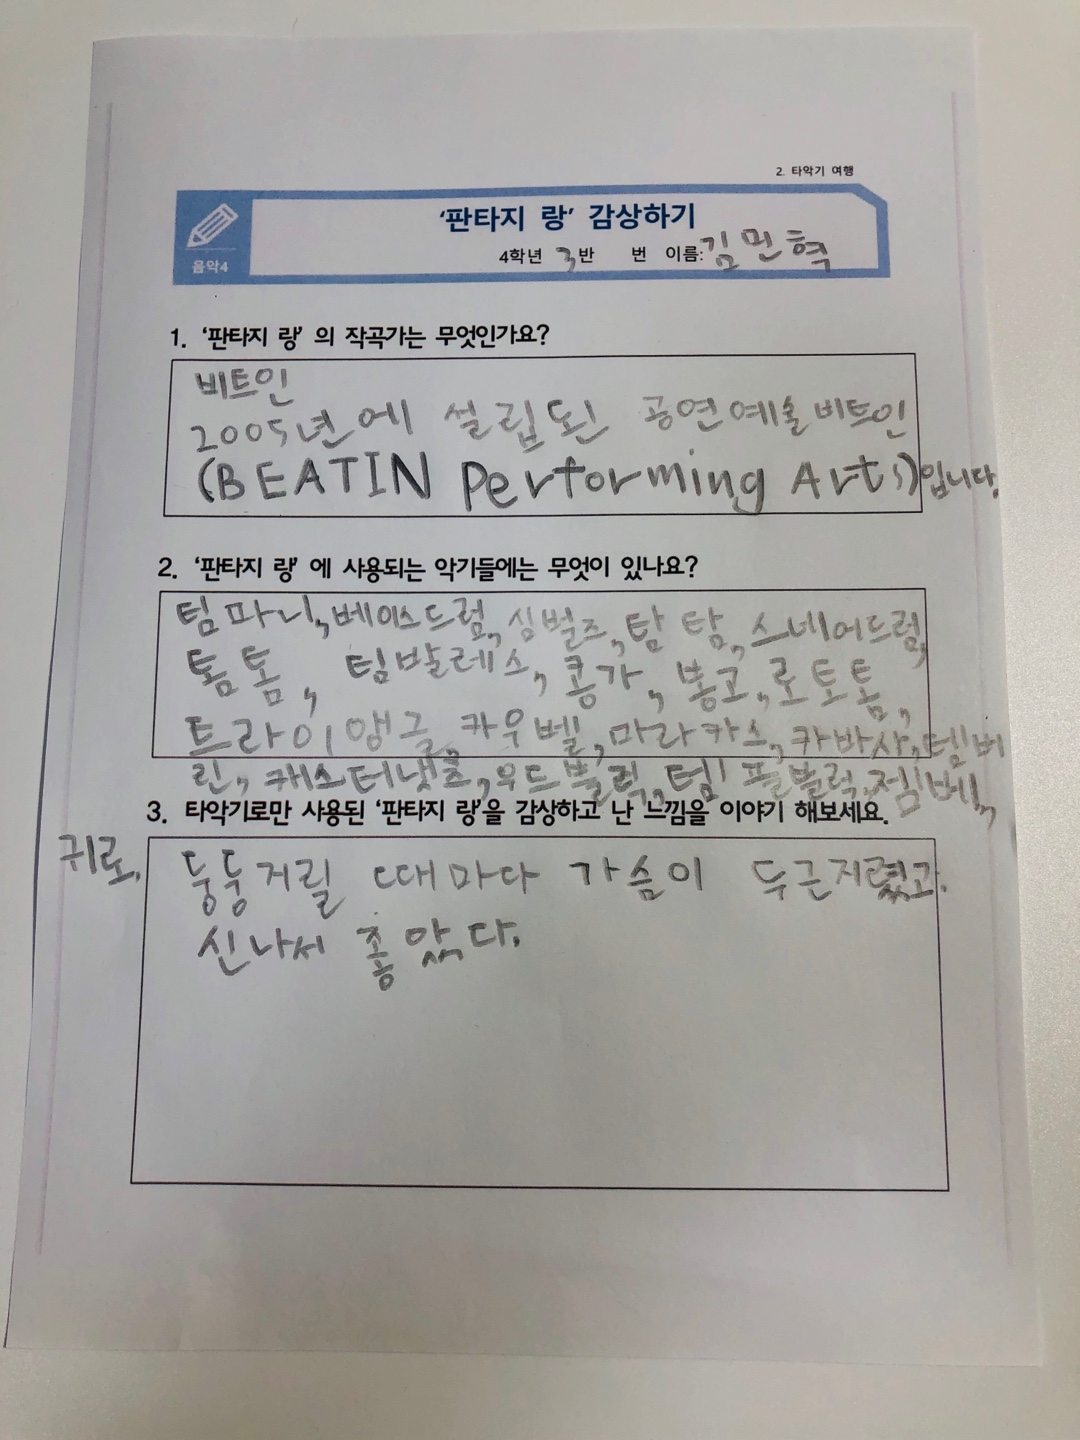 2. 타악기 여행
'판타지 랑' 감상하기
음악4
4학년 3반 번 이름: 김민혁
1. '판타지 랑' 의 작곡가는 무엇인가요?
비트인
2005년에 설립된 공연예술비트인
(BEATIN Performing Arts)입니다.
2. '판타지 랑' 에 사용되는 악기들에는 무엇이 있나요?
팀파니, 베이스드럼, 심벌즈, 탐탐, 스네어드럼,
톰톰, 팀발레스, 콩가, 봉고, 로토톰,
트라이앵글, 카우벨, 마라카스, 카바사, 템버
린, 캐스터냇츠, 우드블럭, 템플블럭, 젬베,
3. 타악기로만 사용된 '판타지 랑'을 감상하고 난 느낌을 이야기 해보세요.
귀로.
둥둥거릴 때마다 가슴이 두근지렸고.
신나서 좋았다.